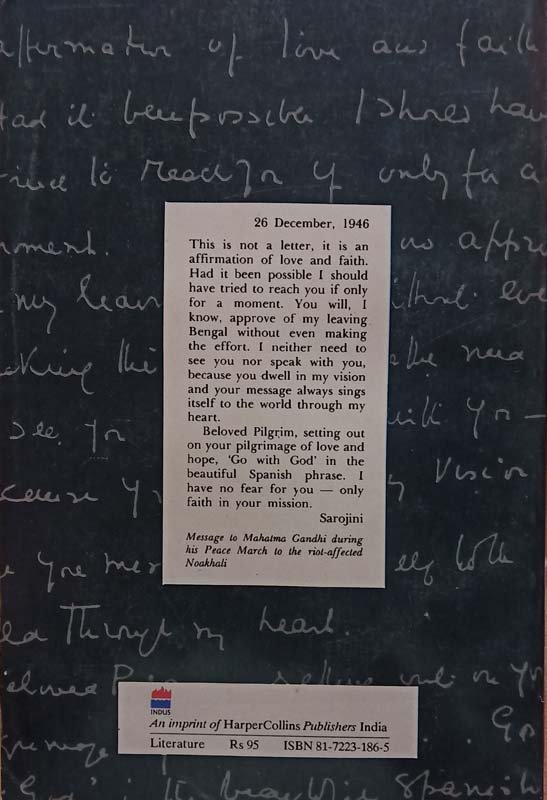 affirmation of love and faith
Had it been possible I should have
tried to reach you if only for a
moment.
no appro
my leav
without eve
aking the
the need
see you
with you —
because yo
y vision
self to the
ld through my heart.
eloved P
setting out on yo
Go
God' in the beautiful Spanish
26 December, 1946
This is not a letter, it is an
affirmation of love and faith.
Had it been possible I should
have tried to reach you if only
for a moment. You will, I
know, approve of my leaving
Bengal without even making
the effort. I neither need to
see you nor speak with you,
because you dwell in my vision
and your message always sings
itself to the world through my
heart.
Beloved Pilgrim, setting out
on your pilgrimage of love and
hope, ‘Go with God’ in the
beautiful Spanish phrase. I
have no fear for you — only
faith in your mission.
Sarojini
Message to Mahatma Gandhi during
his Peace March to the riot-affected
Noakhali
INDUS
An imprint of HarperCollins Publishers India
Literature Rs 95 ISBN 81-7223-186-5